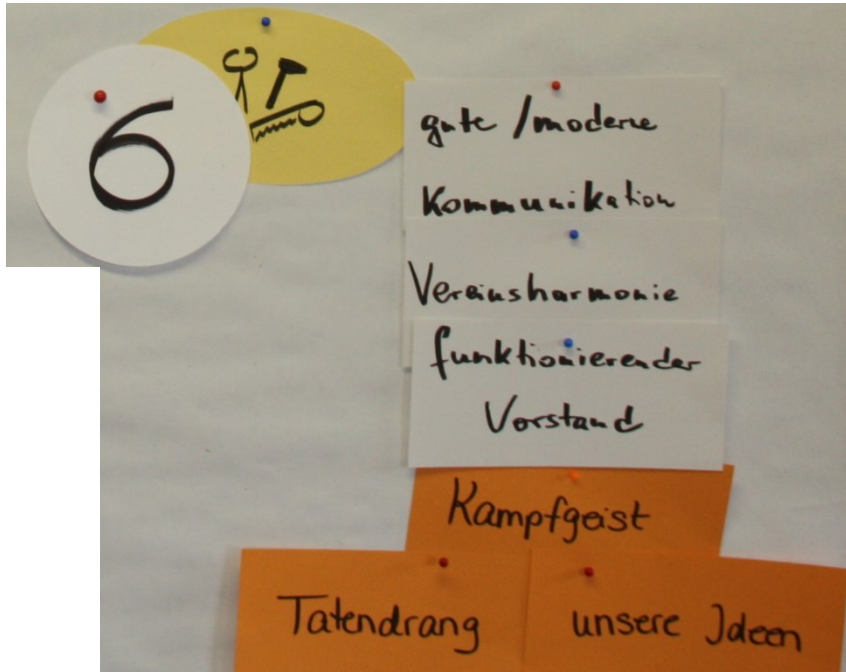 6
gute / moderne
Kommunikation
Vereinsharmonie
funktionierender
Vorstand
Kampfgeist
Tatendrang
unsere Ideen